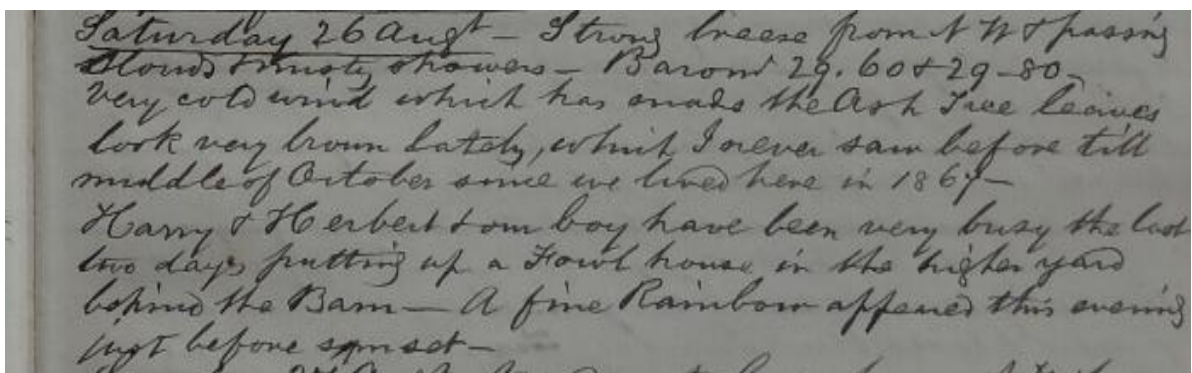 Saturday 26 Augt – Strong breeze from N W & passing
Clouds & misty showers – Barom 29.60 & 29-80 –
Very cold wind which has made the Ash Tree leaves
look very brown lately, which I never saw before till
middle of October since we lived here in 1867 –
Harry & Herbert & our boy have been very busy the last
two days putting up a Fowl house in the higher yard
behind the Barn – A fine Rainbow appeared this evening
just before sunset –